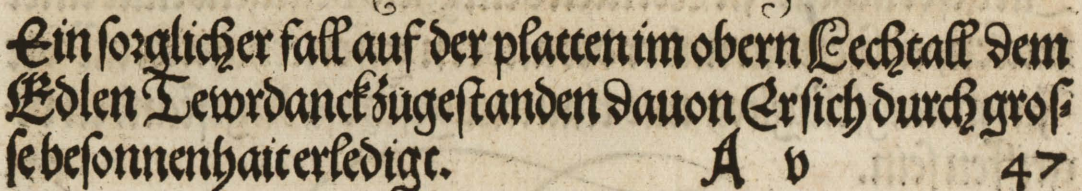 Ein sorglicher fall auf der platten im obern Lechtall dem
Edlen Tewrdanck zugestanden dauon Er sich durch gros-
se besonnenhait erledigt. A v 47